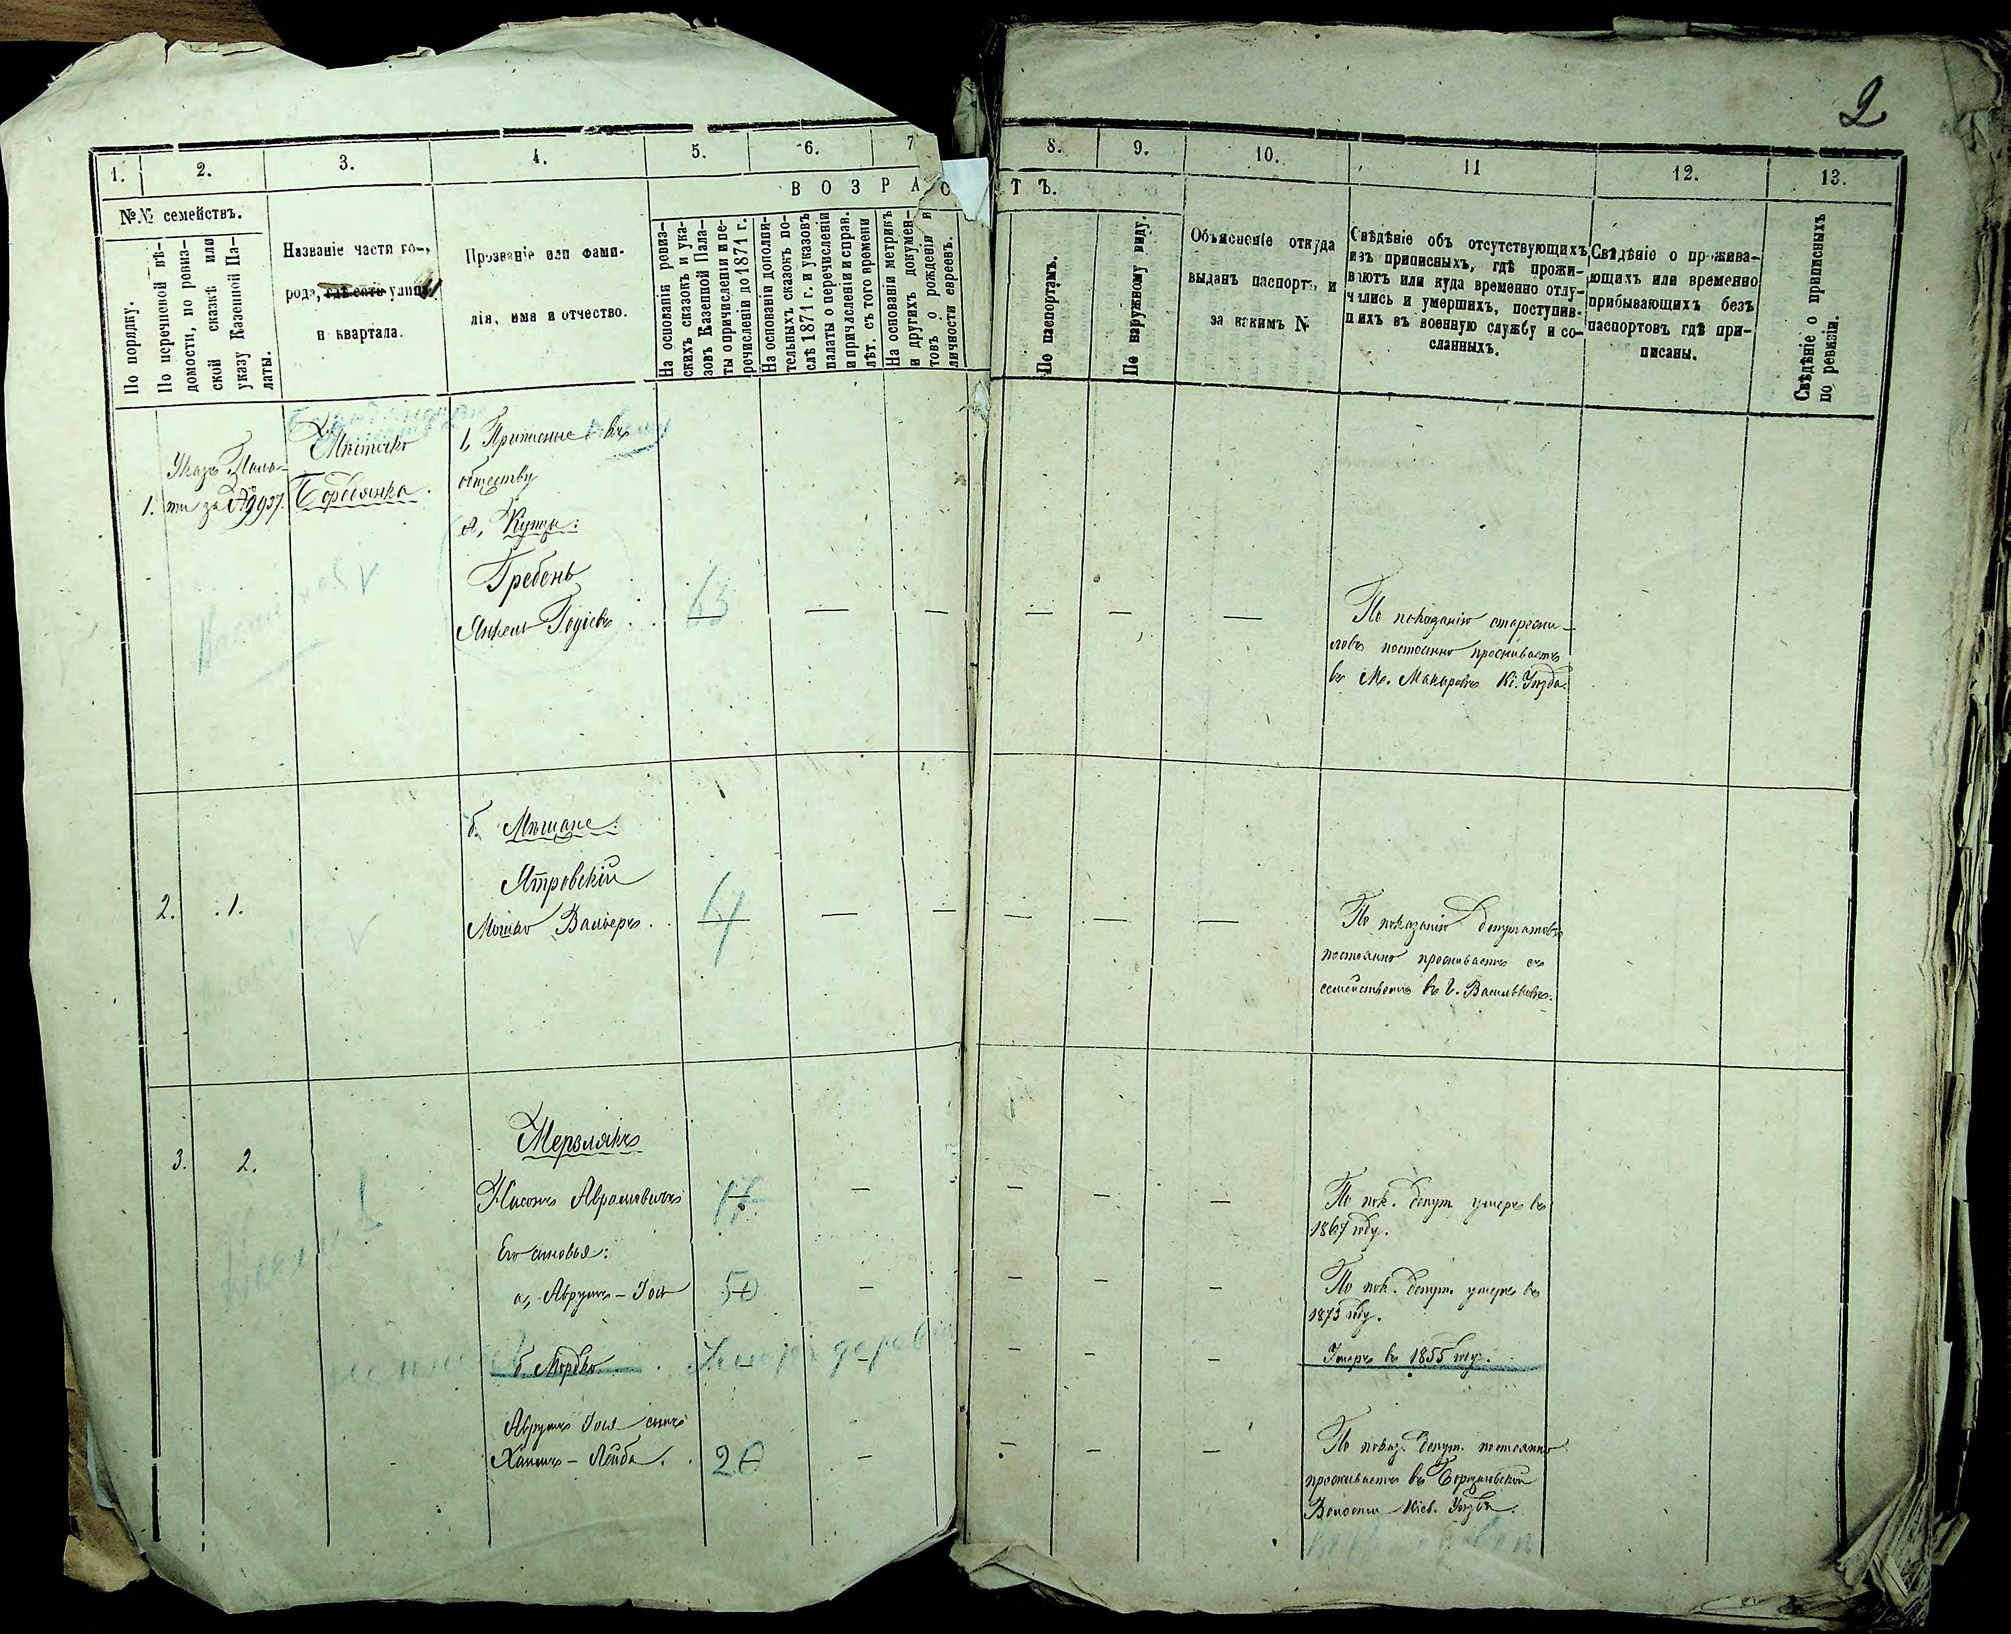 2
1.
2.
3.
4.
5.
6.
7
8.
9.
10.
11
12.
13.
ВОЗРАСТЪ.
№№ семействъ.
По порядку.
По перечневой вѣ-
домости, по ревиз-
ской сказкѣ или
указу Казенной Па-
латы.
Названіе части го-
рода, гдѣ есть улица
и квартала.
Прозваніе или фами-
лія, имя и отчество.
На основаніи ревиз-
скихъ сказокъ и ука-
зовъ Казенной Пала-
ты о причисленіи и пе-
речисленіи до 1871 г.
На основаніи дополни-
тельныхъ сказокъ по-
слѣ 1871 г. и указовъ
палаты о перечисленіи
и причисленіи и справ.
лѣт. съ того времени
На основаніи метрикъ
и другихъ докумен-
товъ о рожденіи и
личности евреевъ.
По паспортамъ.
По наружному виду.
Объясненіе откуда
выданъ паспортъ и
за какимъ №
Свѣдѣніе объ отсутствующихъ
изъ приписныхъ, гдѣ прожи-
ваютъ или куда временно отлу-
чились и умершихъ, поступив-
шихъ въ военную службу и со-
сланныхъ.
Свѣдѣніе о прожива-
ющихъ или временно
прибывающихъ безъ
паспортовъ гдѣ при-
писаны.
Свѣдѣніе о приписныхъ
по ревизіи.
1.
Указъ Пала-
ты за № 9937.
Мѣстечко
Бородянка.
1, Приписные къ
обществу
а, Купцы:
Гребень
Янкель
63
По показанію старожи-
ловъ постоянно проживаетъ
въ М. Макаровѣ Кі. Уѣзда.
б. Мѣщане:
2.
1.
Ятровскій
Мошко
64
По показанію депутатовъ
постоянно проживаетъ съ
семействомъ въ г. Васильковѣ.
3.
2.
Мерзлякъ
Нисонъ Абрамовичъ
По пок. депут. умеръ въ
1867 году.
Его сыновья:
а, Абрумъ-Іось
50
По пок. депут. умеръ въ
1873 году.
б. Мордко
Умеръ въ 1855 году.
Абрумъ Іося сынъ
Хаимъ-Лейба.
20
По показ. депут. постоянно
проживаетъ въ
Волости Кіев. Уѣзда.